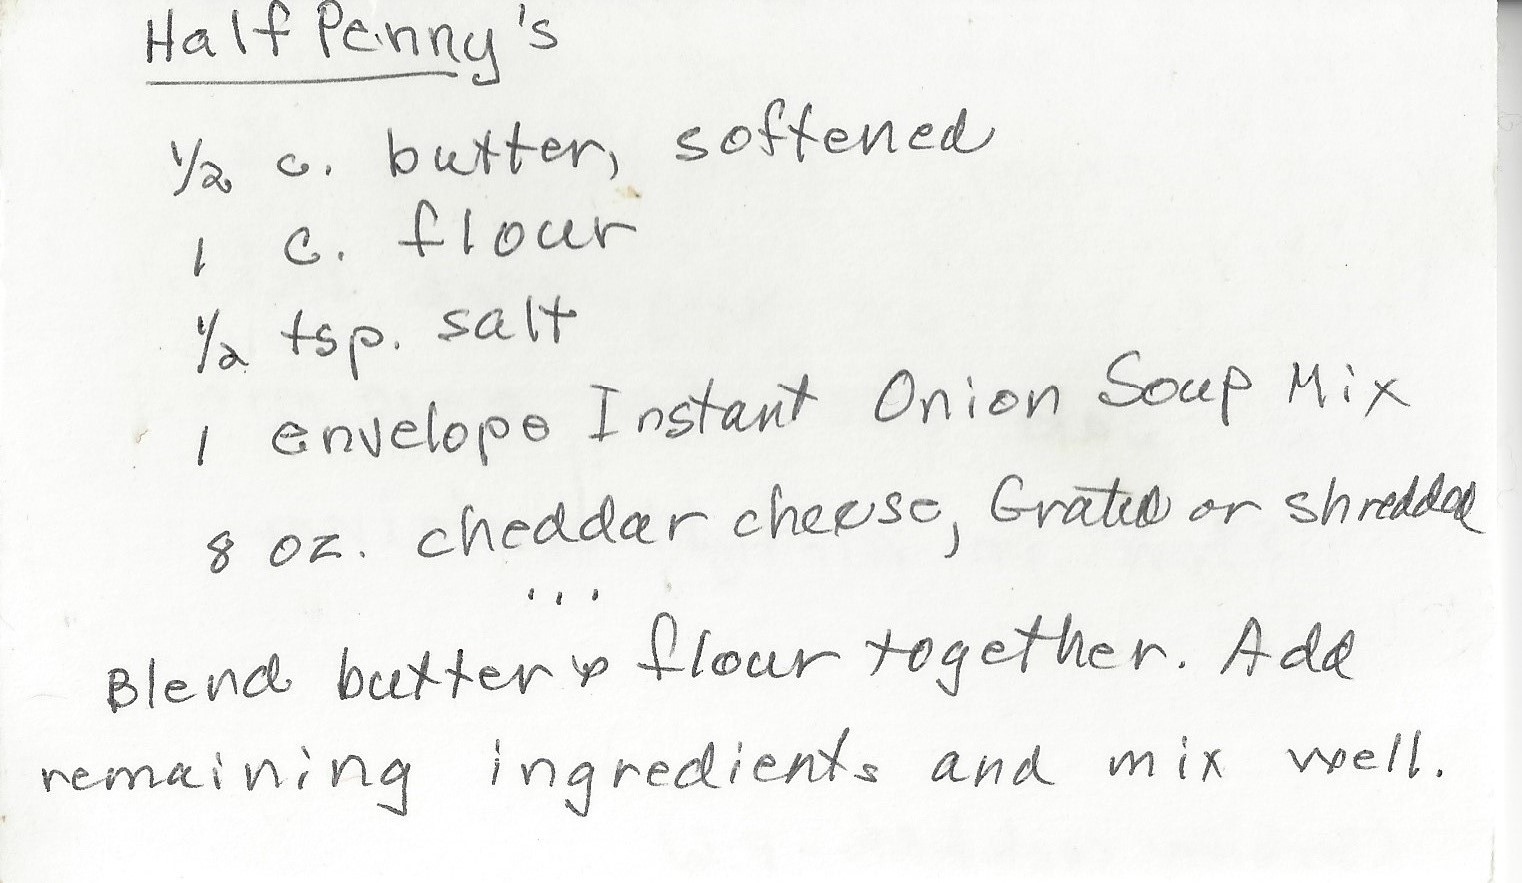 Half Penny's
1/2 c. butter, softened
1 c. flour
1/2 tsp. salt
1 envelope Instant Onion Soup Mix
8 oz. cheddar cheese, Grated or shredded
...
Blend butter & flour together. Add
remaining ingredients and mix well.